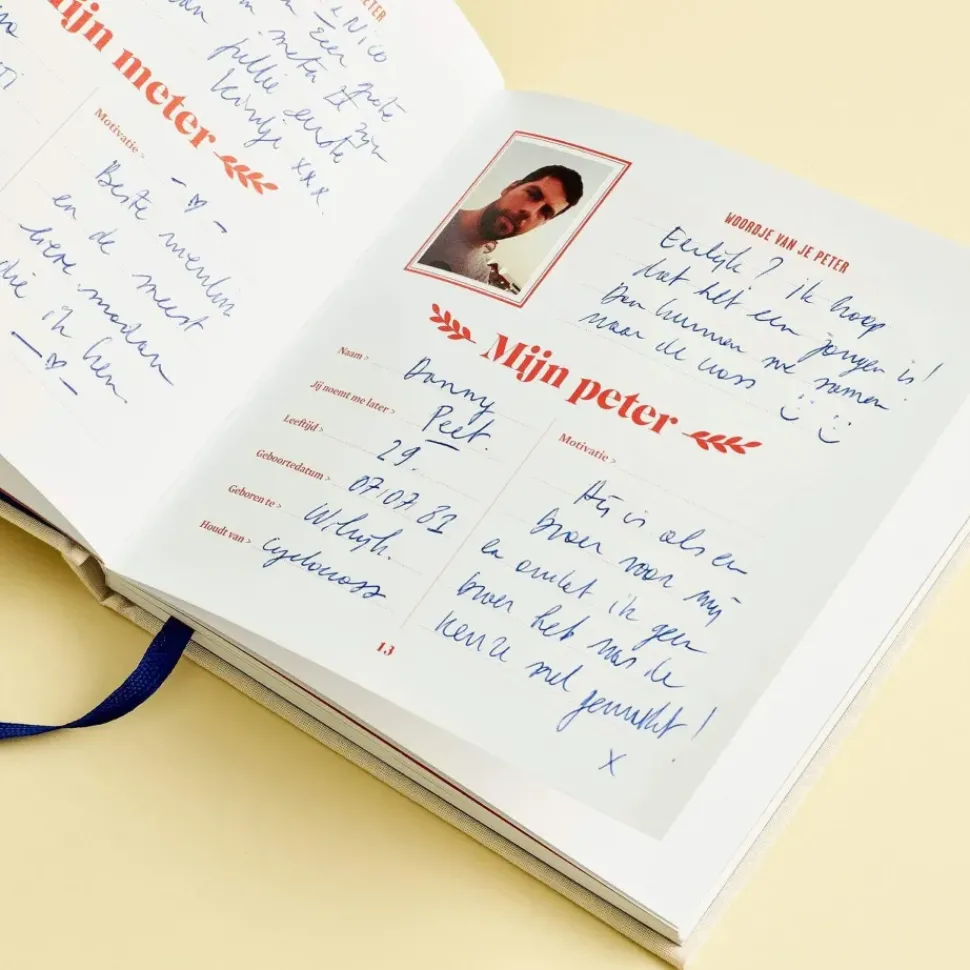 PETER
Mijn meter
Nico
Een grote
meter zijn
jullie eerste
kindje xxx.
Motivatie >
Beste
en de meest
lieve madam
die ik ken.
WOORDJE VAN JE PETER
Eerlijk? ik hoop
dat het een jongen is!
Dan kunnen we samen
naar de cross
Mijn peter
Naam > Danny
Jij noemt me later > Peet.
Leeftijd > 29.
Geboortedatum > 07.07.81
Geboren te > Wilrijk.
Houdt van > cyclocross
Motivatie >
Hij is als een
broer voor mij
en omdat ik geen
broer heb was de
keuze snel
gemaakt!
x
13